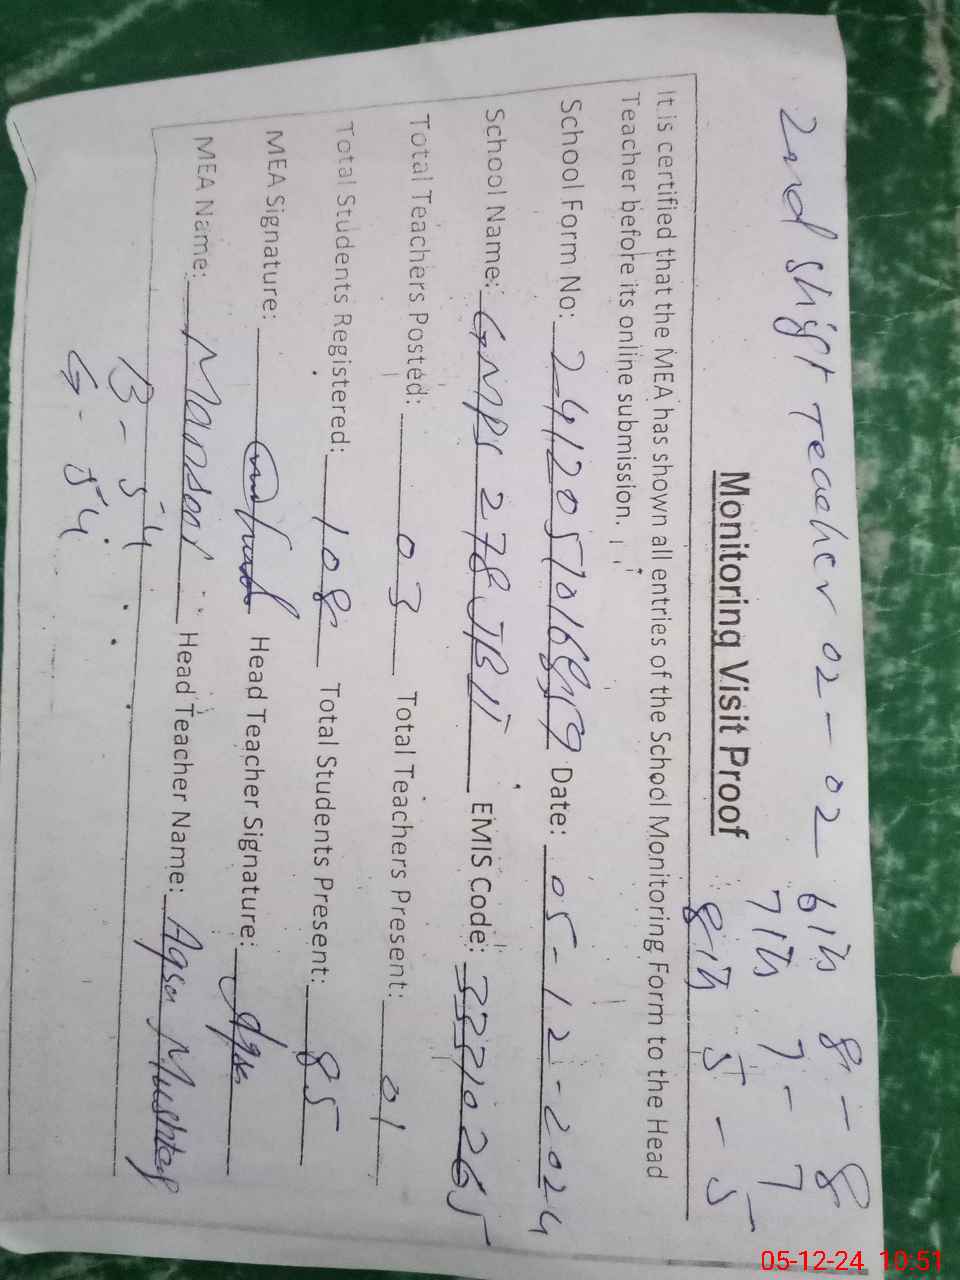 2nd shift Teacher 02 - 02 6th 8 - 8
7th 7 - 7
8th 5 - 5
Monitoring Visit Proof
It is certified that the MEA has shown all entries of the School Monitoring Form to the Head
Teacher before its online submission.
School Form No: Date: 05-12-2024
School Name: GMPS 278 JB II EMIS Code: 33210265
Total Teachers Posted: 03 Total Teachers Present: 01
Total Students Registered: 108 Total Students Present: 85
MEA Signature: Head Teacher Signature: Aqsa
MEA Name: Mansoor Head Teacher Name: Aqsa Mushtaq
B - 54
G - 54
05-12-24 10:51